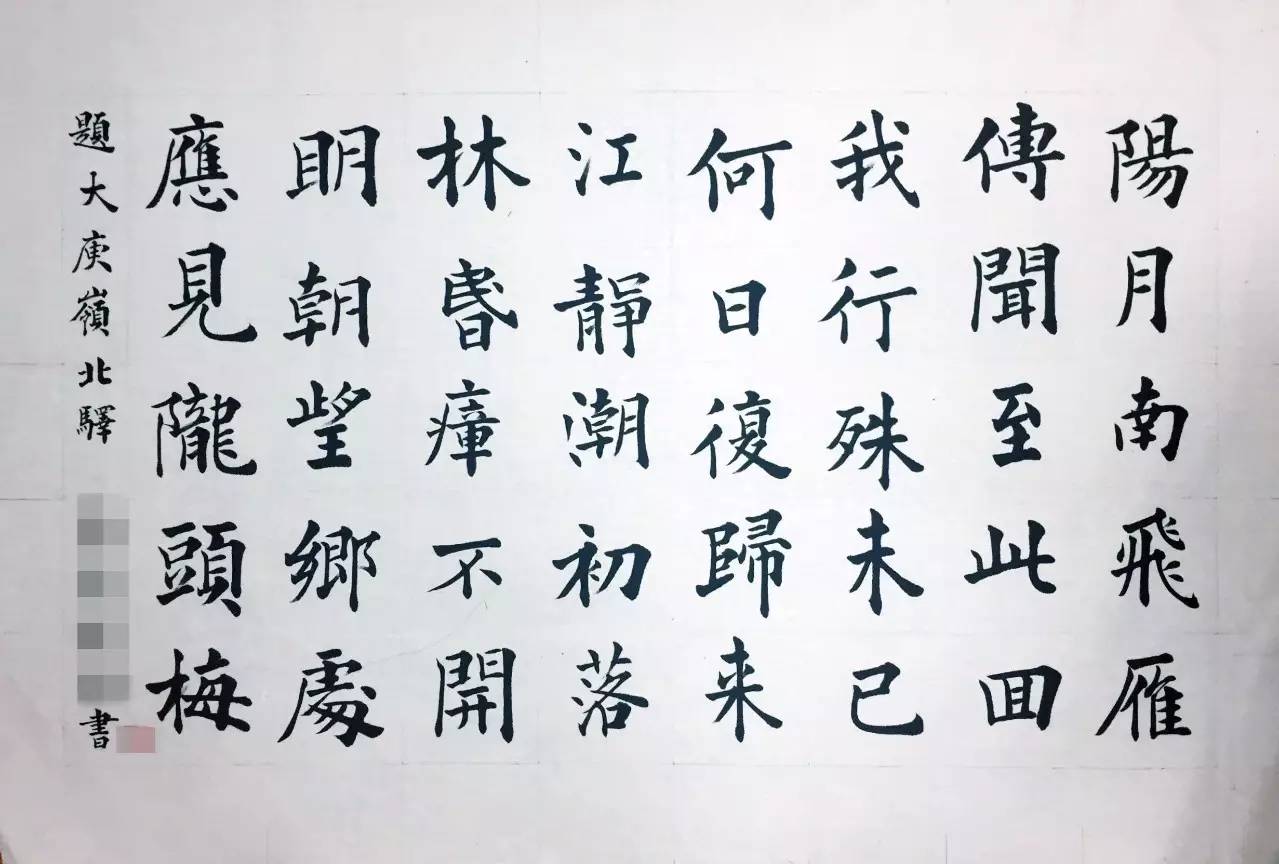 陽月南飛雁
傳聞至此回
我行殊未已
何日復歸来
江靜潮初落
林昏瘴不開
明朝望鄉處
應見隴頭梅
題大庾嶺北驛
書